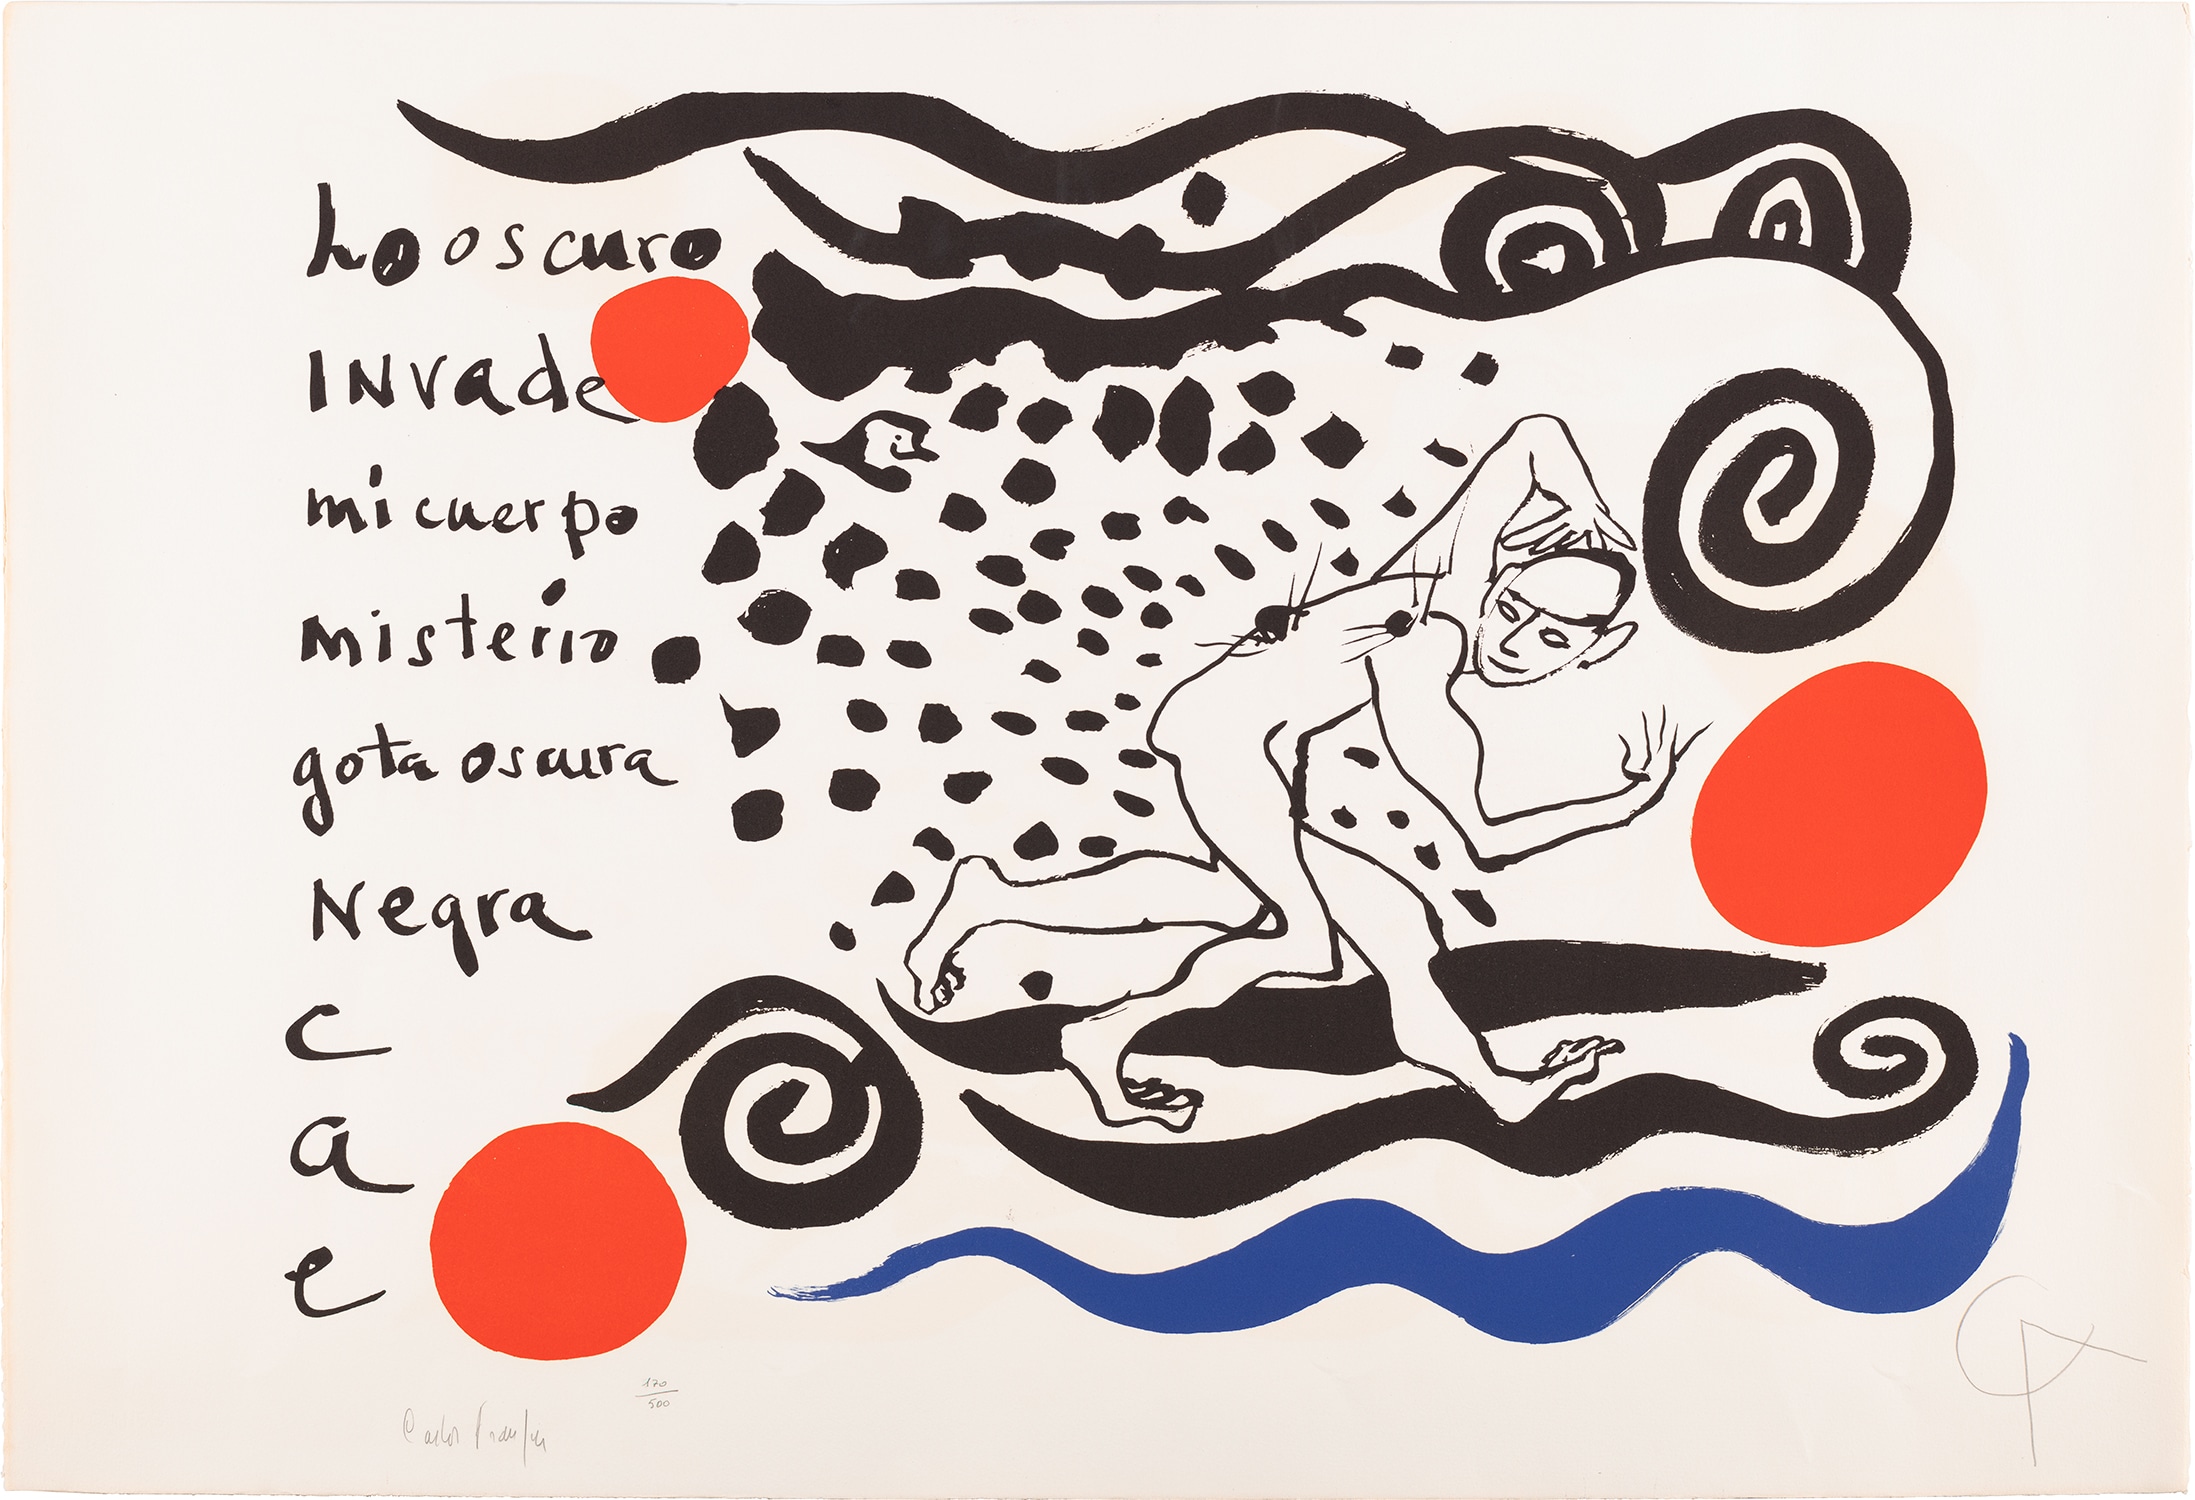 Lo oscuro
INvade
mi cuerpo
misterio
gota oscura
Negra
c
a
e
170
500
Carlos